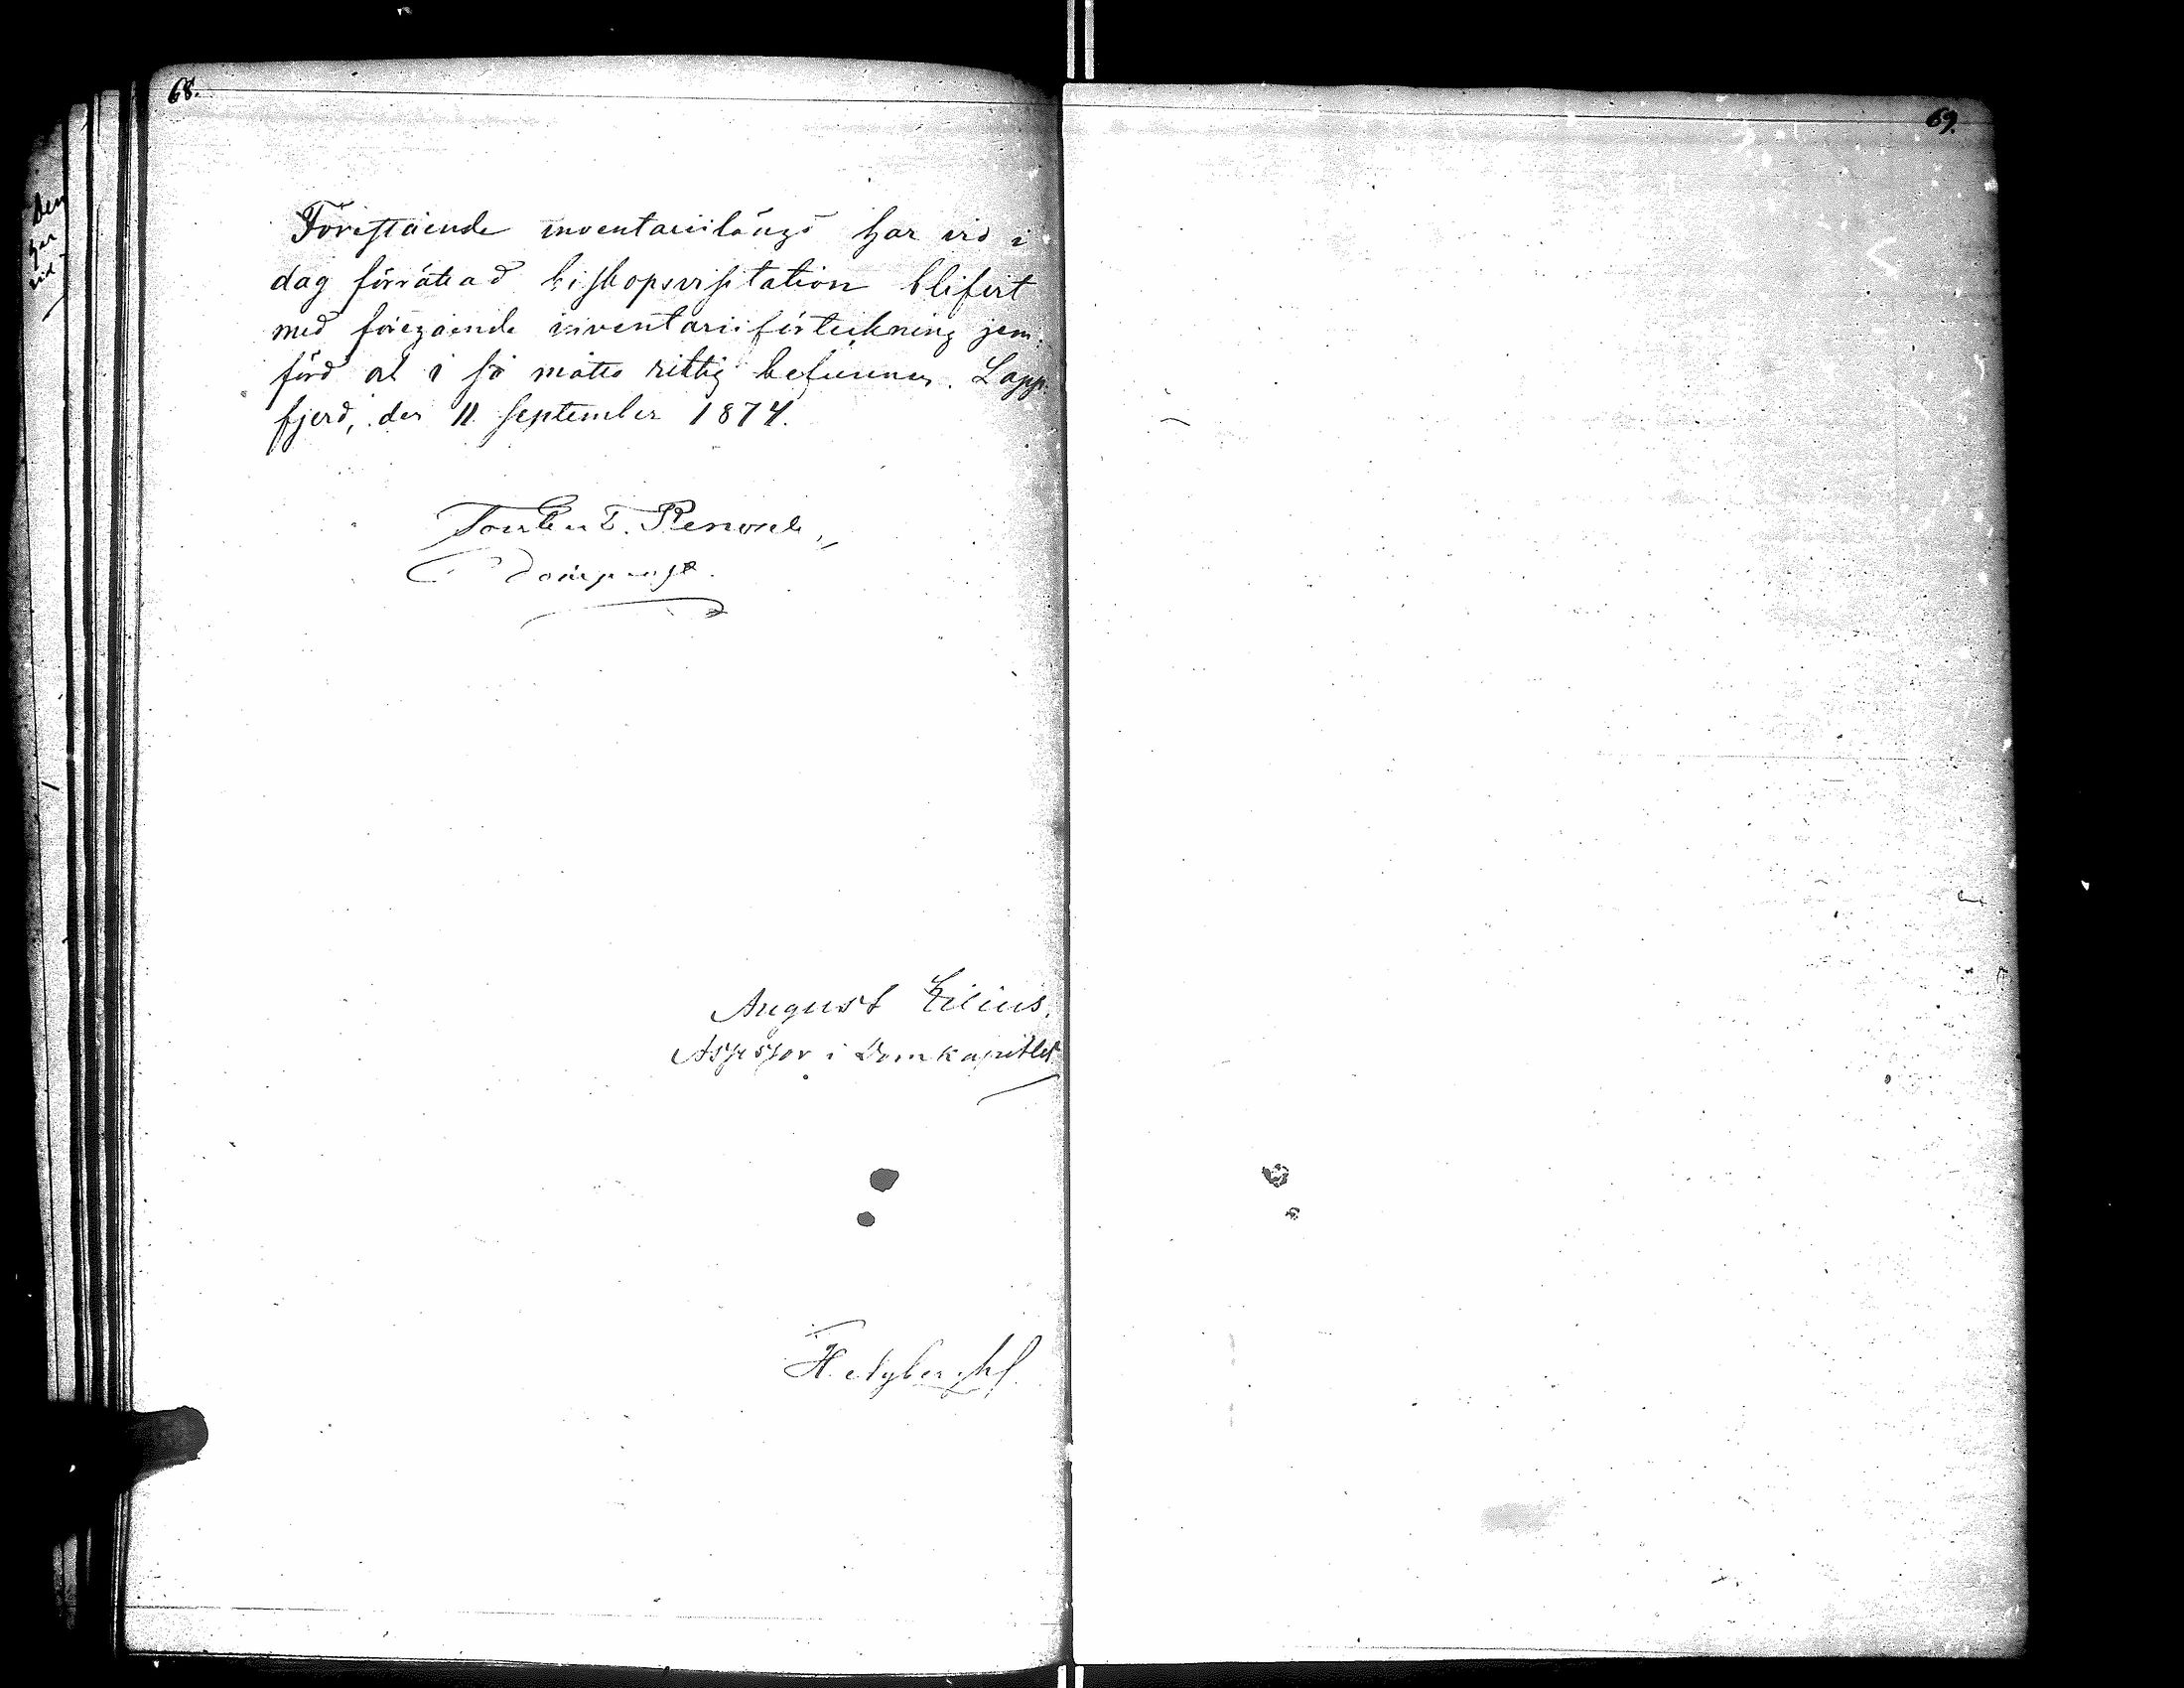 68.
69.
den
har
vid
Förestående inventariilängd har vid i
dag förrättad biskopsvisitation blifvit
med föregående inventariiförteckning jem-
förd och i så måtto riktig befunnen. Lapp-
fjerd, den 11 September 1874.
Torsten T. Renvall,
Domprost.
August Lilius,
Assessor i Domkapitlet
H. Nyberg